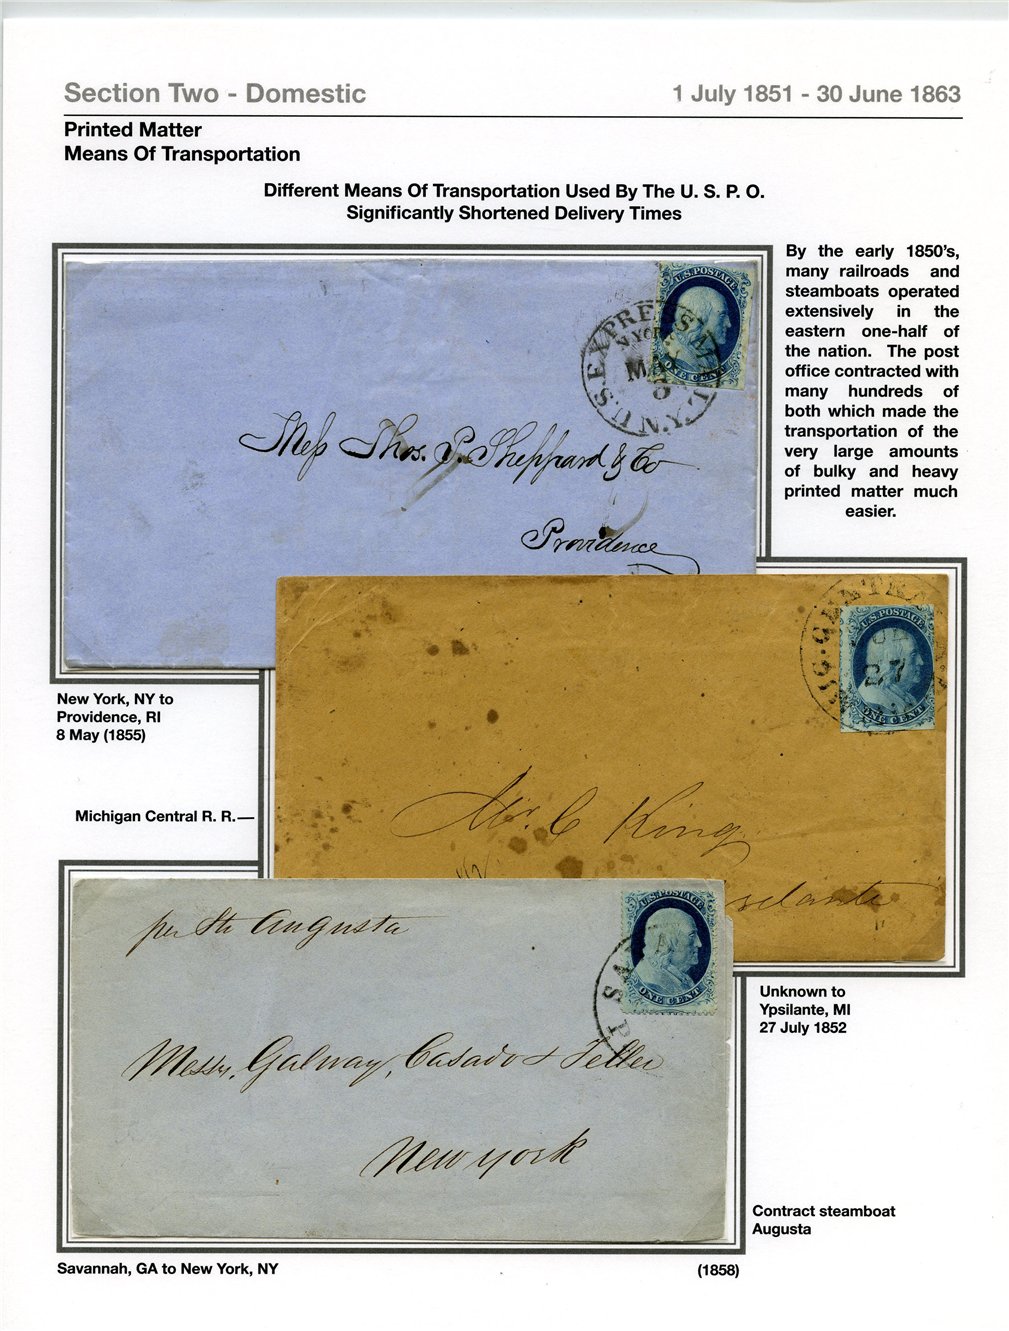 Section Two - Domestic
1 July 1851 - 30 June 1863
Printed Matter
Means Of Transportation
Different Means Of Transportation Used By The U. S. P. O.
Significantly Shortened Delivery Times
By the early 1850's,
many railroads and
steamboats operated
extensively in the
eastern one-half of
the nation. The post
office contracted with
many hundreds of
both which made the
transportation of the
very large amounts
of bulky and heavy
printed matter much
easier.
U.S. POSTAGE
ONE CENT
U.S. EXPRESS MAIL N.Y.
N. YORK
MAY
8
Mess Thos. P. Sheppard & Co
Providence
New York, NY to
Providence, RI
8 May (1855)
U.S. POSTAGE
ONE CENT
27
Mr. C King
Michigan Central R. R.—
Unknown to
Ypsilante, MI
27 July 1852
per Str Augusta
U.S. POSTAGE
ONE CENT
Messrs. Galway, Casado & Teller
New York
Contract steamboat
Augusta
Savannah, GA to New York, NY
(1858)